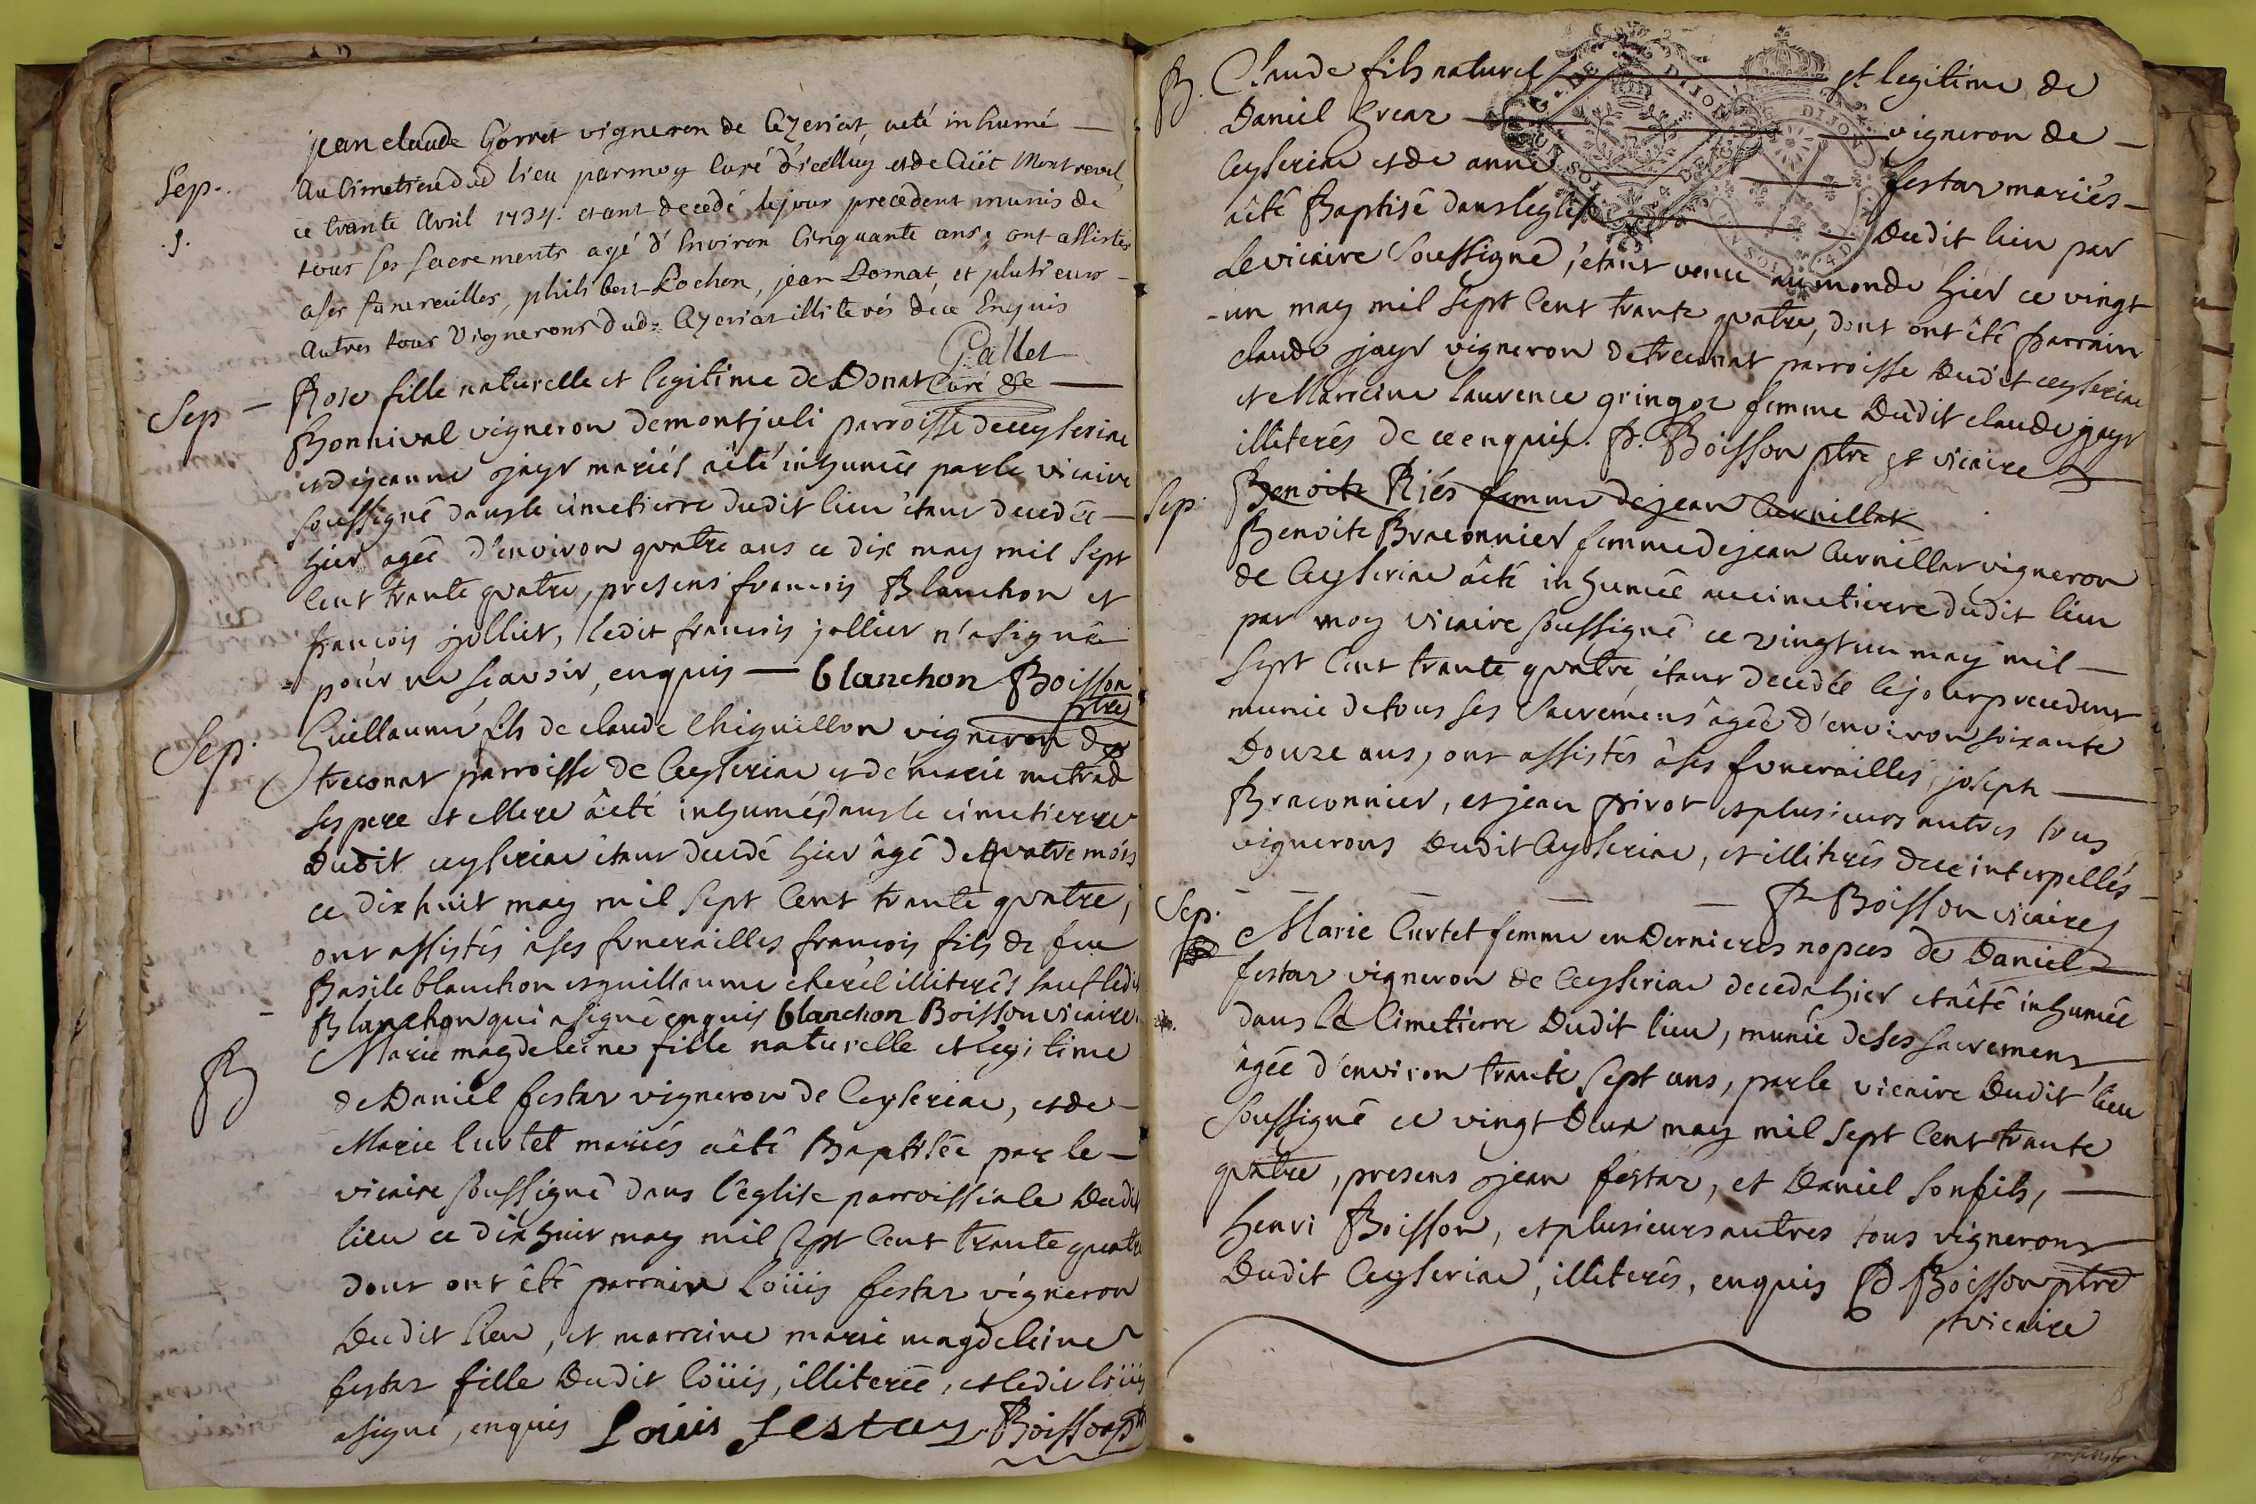 jean claude Gorret vigneron de Ceyzeriat, aeté inhumé
Sep.
.J.
Au Cimetiere dud lieu parmoy Curé d'icelluy et de Cüet Montrevel,
ce trante Avril 1734. etant decedé lejour precedent munis de
tous ses sacrements agé d'environ Cinquante ans; ont assistés
ases funerailles, philibert Lochon, jean Lomat, et plusieurs
Autres tous Vignerons dud: Ceyzeriat illiterés dece Enquis
Gallet
Curé de
Sep
Rose fille naturelle et legitime de Donat
Bonnival vigneron demontjuli parroisse deceyseriac
et dejeanne jayr mariés aêté inhumée parle vicaire
soussigné dansle cimetierre dudit lieu étant decedée
hier agée d'environ quatre ans ce dix may mil sept
cent trante quatre, presens francois Blanchon et
francois jollier, ledit francois jollier n'asigné
pour ne scavoir, enquis blanchon Boisson
ptre
Sep.
Guillaume fils de claude Chiguillon vigneron de
treconat parroisse de Ceyseriac et de marie metrad
ses pere et Mere aêté inhumé dansle cimetierre
Dudit ceyseriac étant decedé hier âgé de quatre mois
ce dix huit may mil sept cent trante quatre,
ont assistés ases funerailles françois fils de feu
Basile blanchon et guillaume cherel illiterés sauf ledit
Blanchon qui asigné enquis blanchon Boisson vicaire
B
Marie magdeleine fille naturelle et legitime
de Daniel festar vigneron de Ceyseriac, et de
Marie Curtet mariés aêté Baptisée par le
vicaire soussigné dans l'eglise parroissiale Dudit
lieu ce dix huit may mil sept cent trante quatre
dont ont êté parrain Loüis festar vigneron
Dudit lieu, et marreine marie magdeleine
festar fille Dudit loüis, illiterée, et ledit loüis
asigné, enquis Louis festay Boisson ptre
B.
Claude fils naturel et legitime de
Daniel Greaz vigneron de
Ceyseriac et de anne festar mariés
aêté Baptisé dans leglise Dudit lieu par
Le vicaire Soussigné, étant venu au monde hier ce vingt
un may mil sept Cent trante quatre, dont ont êté parrain
claude jayr vigneron de treconat parroisse Dudit ceyseriac
et Marreine laurence gringoz femme Dudit claude jayr
illiterés de ce enquis. P. Boisson ptre et vicaire
Sep.
Benoite Riés femme dejean Curnillat
Benoite Braconnier femme dejean Curnillat vigneron
de Ceyseriac aêté inhumée aucimetierre dudit lieu
par moy vicaire soussigné ce vingt un may mil
sept Cent trante quatre étant decedée lejour precedent
munie de tous ses Sacremens agée d'environ soixante
Douze ans, ont assistés ases funerailles joseph
Braconnier, et jean pivot et plusieurs autres tous
vignerons Dudit Ceyseriac, et illiterés dece interpellés
P. Boisson vicaire
Sep.
Marie Curtet femme en Dernieres nopces de Daniel
festar vigneron de Ceyseriac deceda hier et aêté inhumée
dans le Cimetierre Dudit lieu, munie deses sacremens
agée d'environ trante sept ans, parle vicaire Dudit lieu
soussigné ce vingt Deux may mil sept Cent trante
quatre, presens jean festar, et Daniel sonfils,
henri Boisson, et plusieurs autres tous vignerons
Dudit Ceyseriac, illiterés, enquis P Boisson ptre
et vicaire